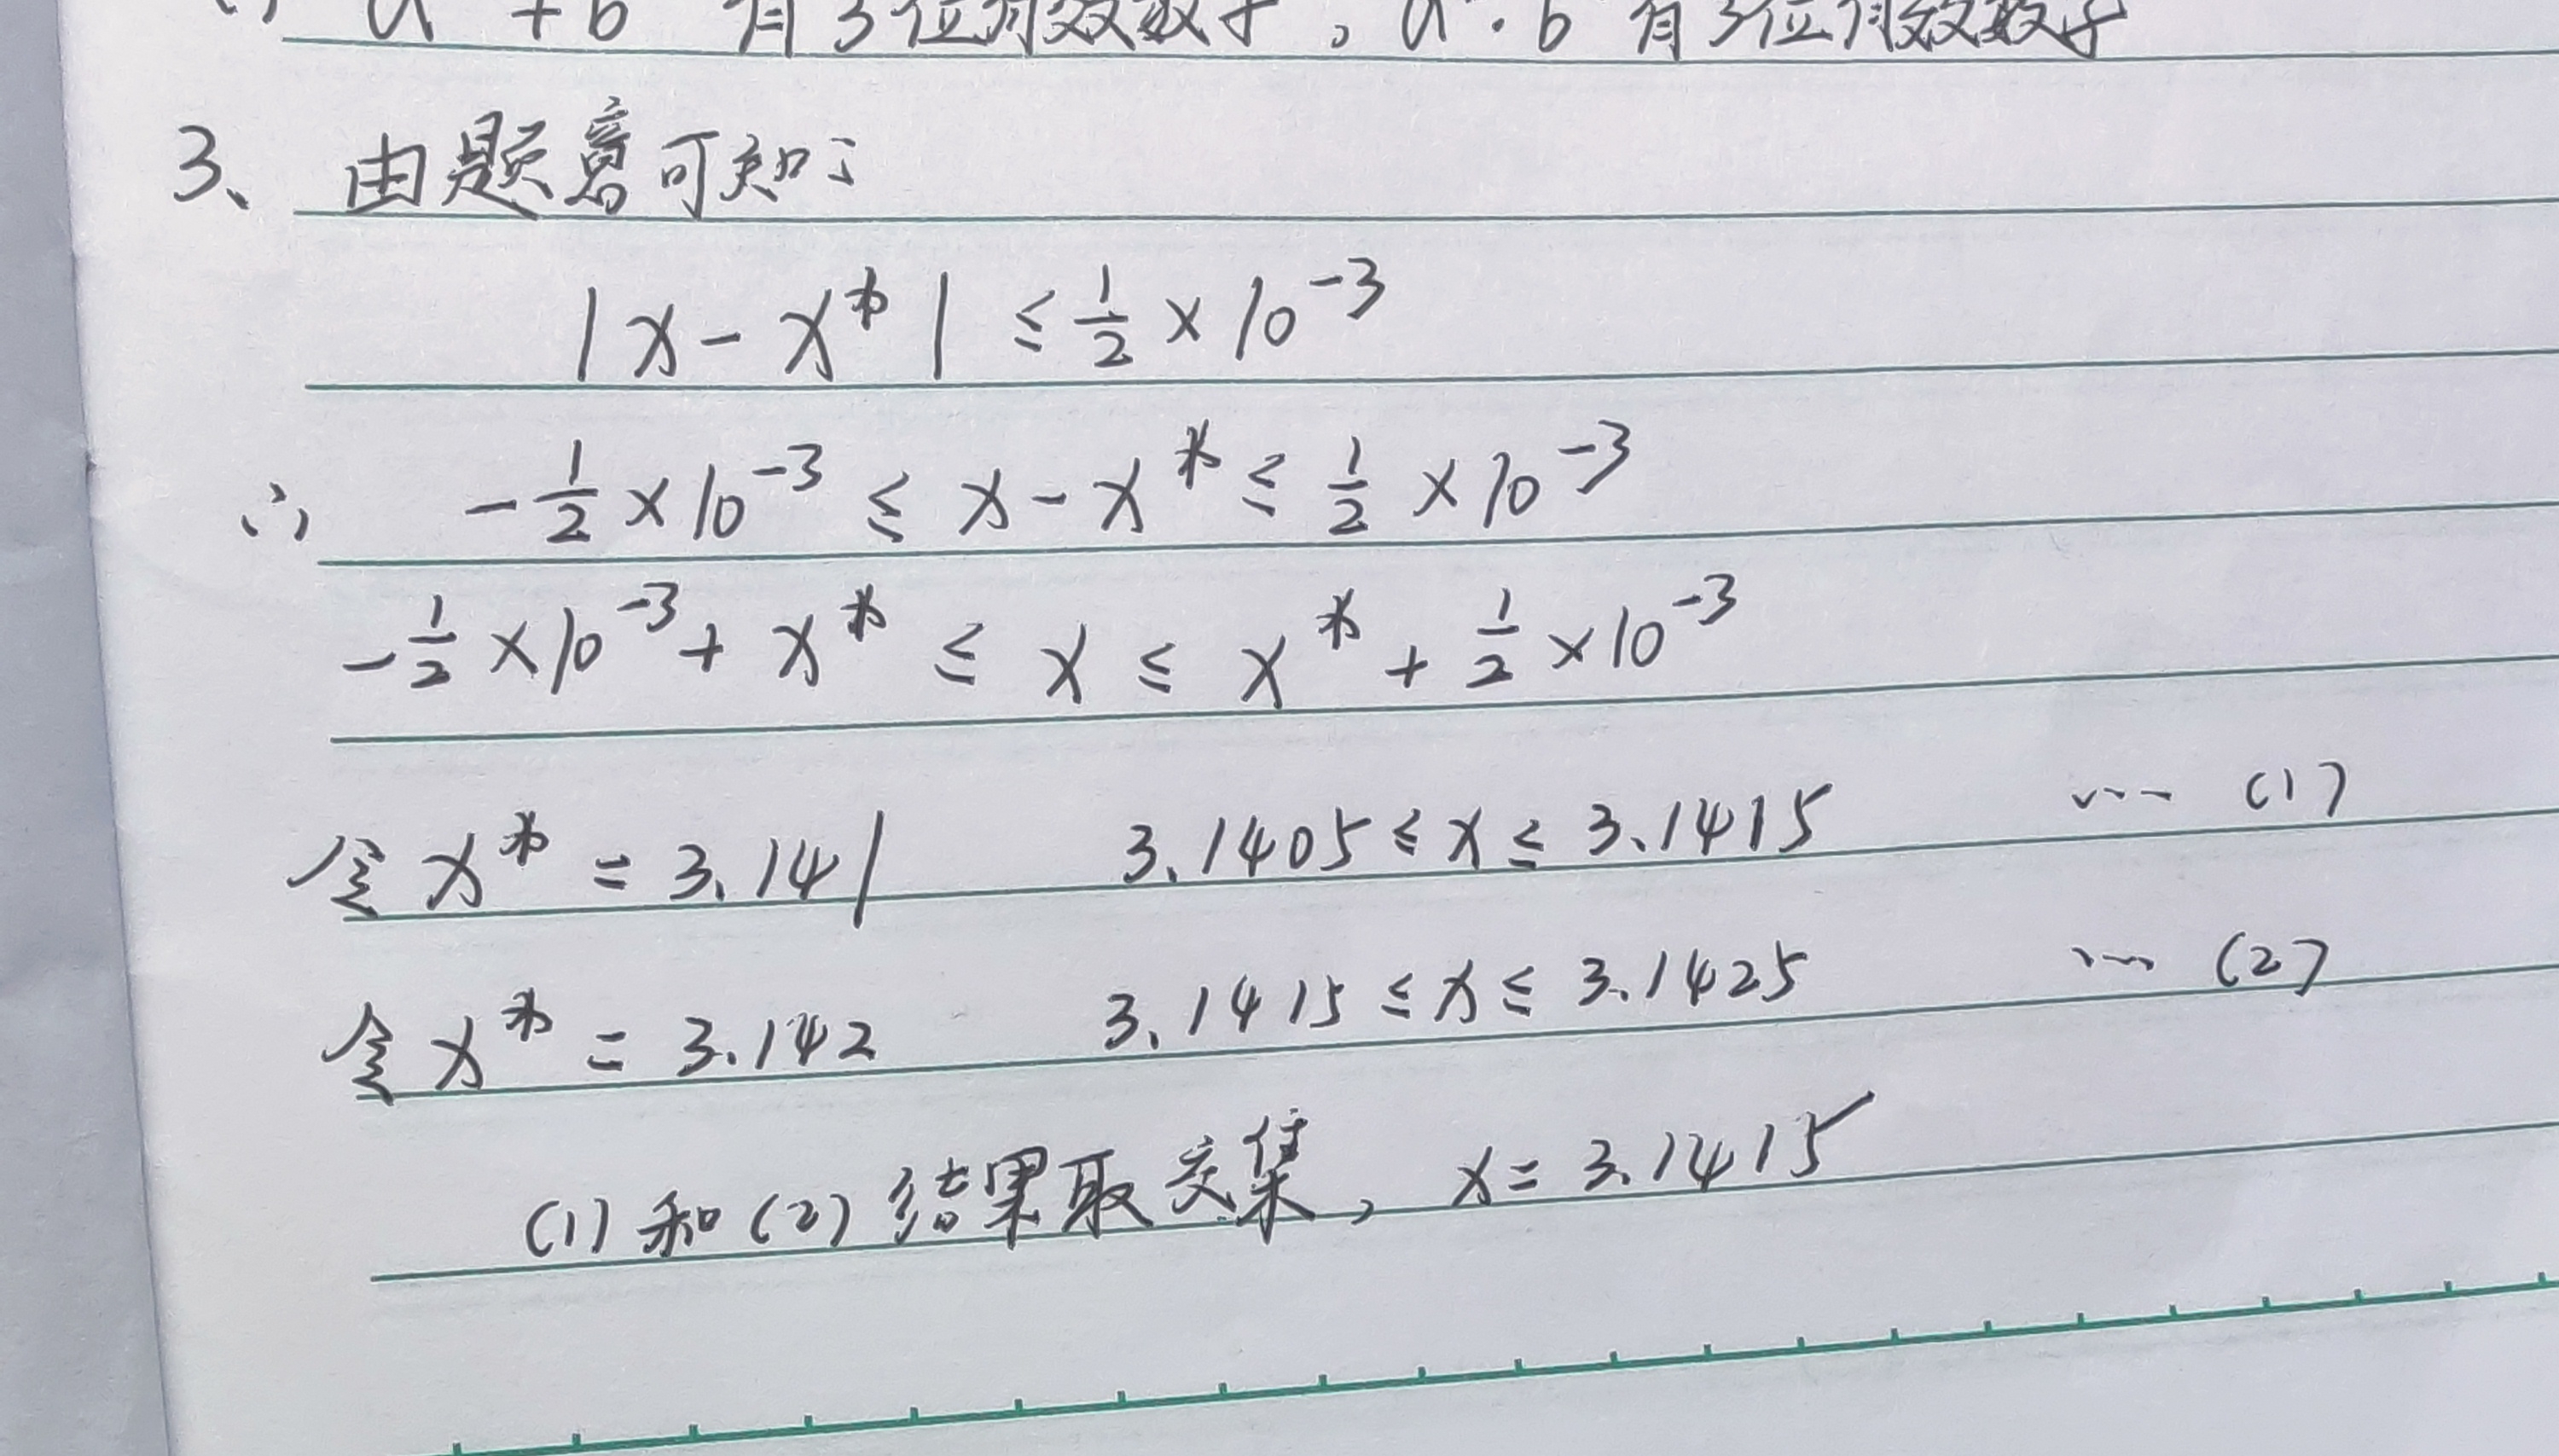 a* + b* 有3位有效数字，a*·b* 有3位有效数字
3、由题意可知：
|x - x*| ≤ 1/2 × 10^-3
∴ -1/2 × 10^-3 ≤ x - x* ≤ 1/2 × 10^-3
-1/2 × 10^-3 + x* ≤ x ≤ x* + 1/2 × 10^-3
令 x* = 3.141 3.1405 ≤ x ≤ 3.1415 … (1)
令 x* = 3.142 3.1415 ≤ x ≤ 3.1425 … (2)
(1) 和 (2) 结果取交集，x = 3.1415